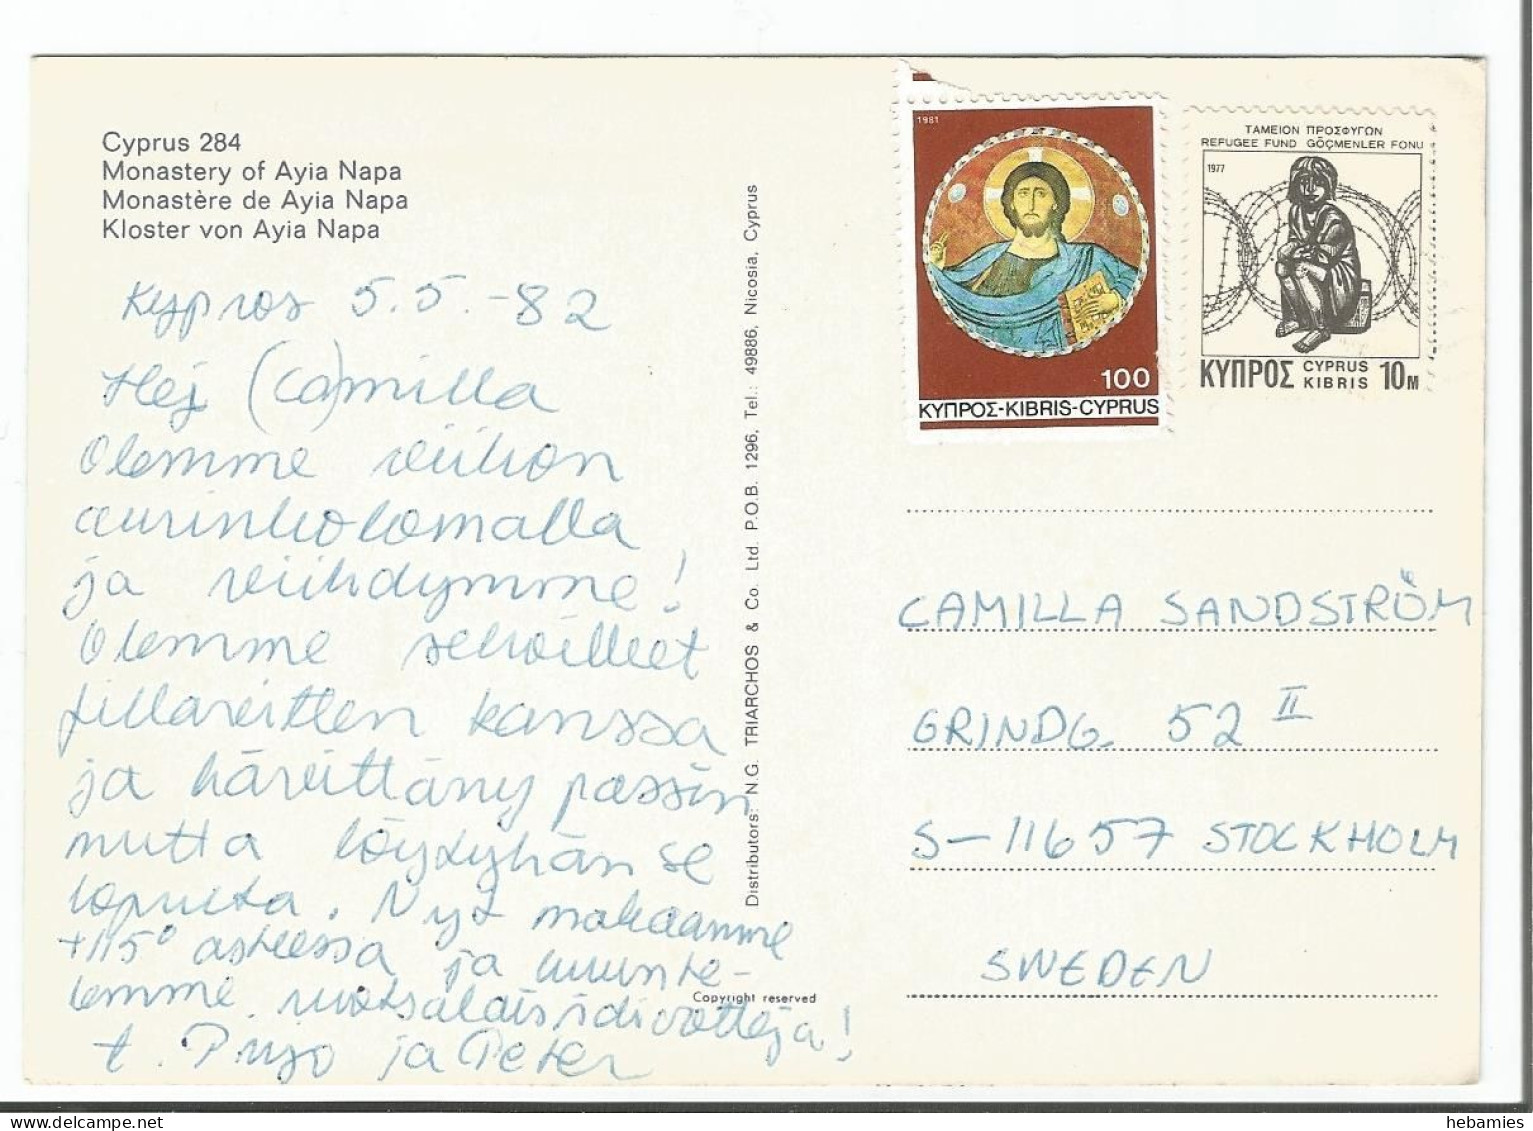 Cyprus 284
Monastery of Ayia Napa
Monastère de Ayia Napa
Kloster von Ayia Napa
Kypros 5.5.-82
Hej (Ca)milla
Olemme viikon
aurinkolomalla
ja viihdymme!
Olemme seikailleet
fillareitten kanssa
ja hävittäny passin
mutta löytyhän se
lopulta. Nyt makaamme
+115° asteessa ja kuunte-
lemme ruotsalaisidiootteja!
t. Pirjo ja Peter
Distributors: N.G. TRIARCHOS & Co. Ltd. P.O.B. 1296, Tel.: 49886, Nicosia, Cyprus
Copyright reserved
1981
100
ΚΥΠΡΟΣ-KIBRIS-CYPRUS
ΤΑΜΕΙΟΝ ΠΡΟΣΦΥΓΩΝ
REFUGEE FUND GÖÇMENLER FONU
1977
ΚΥΠΡΟΣ CYPRUS KIBRIS 10M
CAMILLA SANDSTRÖM
GRINDG. 52 II
S-11657 STOCKHOLM
SWEDEN
hebamies